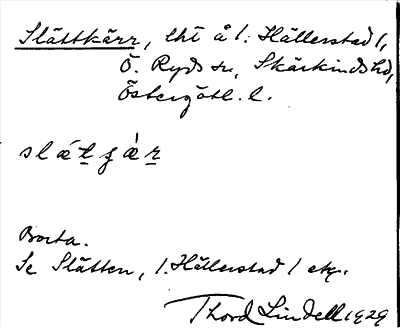 Slättkärr, lht å /: Hällerstad /,
Ö. Ryds sn, Skärkinds hd,
Östergötl. l.
slǽt̠ʒæ̀r̠
Borta.
Se Slätten, /: Hällerstad / etc.
Thord Lindell 1929